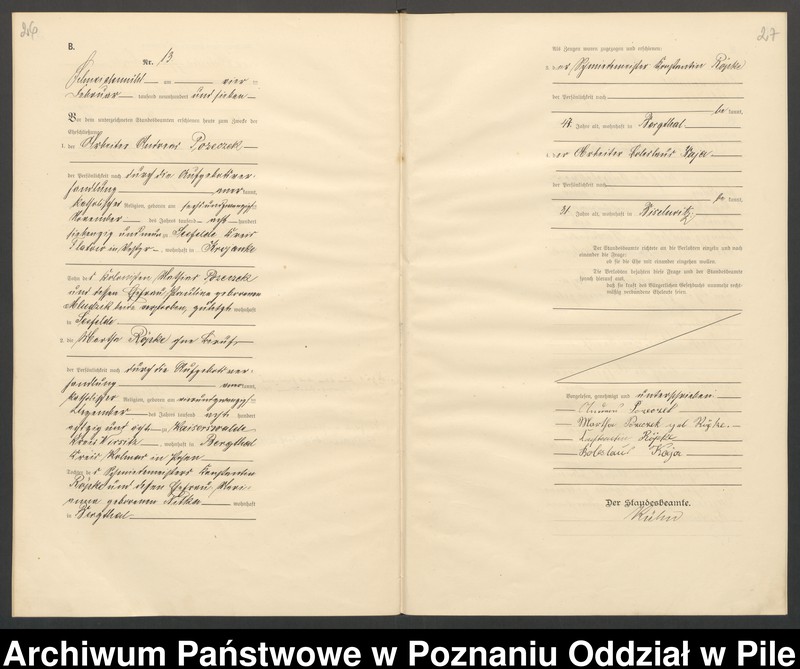 26
B.
Nr. 13
Schneidemühl am vier ten
Februar tausend neunhundert und sieben
Vor dem unterzeichneten Standesbeamten erschienen heute zum Zwecke der
Eheschließung:
1. der Arbeiter Andreas Poseczek
der Persönlichkeit nach durch die Aufgebotsver-
handlung aner kannt,
katholischer Religion, geboren am sechsundzwanzigsten
November des Jahres tausend acht hundert
siebenzig und neun zu Seefelde Kreis
Flatow in Westpr., wohnhaft in Krojanke
Sohn des Mathias Poseczek
und dessen Ehefrau Pauline geborenen
beide verstorben, zuletzt wohnhaft
in Seefelde
2. die Martha Röpke ohne Beruf
der Persönlichkeit nach durch die Aufgebotsver-
handlung aner kannt,
katholischer Religion, geboren am vierundzwanzigsten
Dezember des Jahres tausend acht hundert
achtzig und acht zu Kaiserswalde
Kreis Wirsitz, wohnhaft in Bergthal
Kreis Kolmar in Posen
Tochter des Schmiedemeisters Constantin
Röpke und dessen Ehefrau Mari-
anna geborenen wohnhaft
in Bergthal
27
Als Zeugen waren zugezogen und erschienen:
3. der Schmiedemeister Constantin Röpke
der Persönlichkeit nach
be kannt,
47 Jahre alt, wohnhaft in Bergthal
4. der Arbeiter Boleslaus Kaja
der Persönlichkeit nach
be kannt,
31 Jahre alt, wohnhaft in
Der Standesbeamte richtete an die Verlobten einzeln und nach
einander die Frage:
ob sie die Ehe mit einander eingehen wollen.
Die Verlobten bejahten diese Frage und der Standesbeamte
sprach hierauf aus,
daß sie kraft des Bürgerlichen Gesetzbuchs nunmehr recht-
mäßig verbundene Eheleute seien.
Vorgelesen, genehmigt und unterschrieben
Andreas Poseczek
Martha Poseczek geb Röpke.
Konstantin Röpke
Boleslaus Kaja
Der Standesbeamte.
Kühn
Archiwum Państwowe w Poznaniu Oddział w Pile